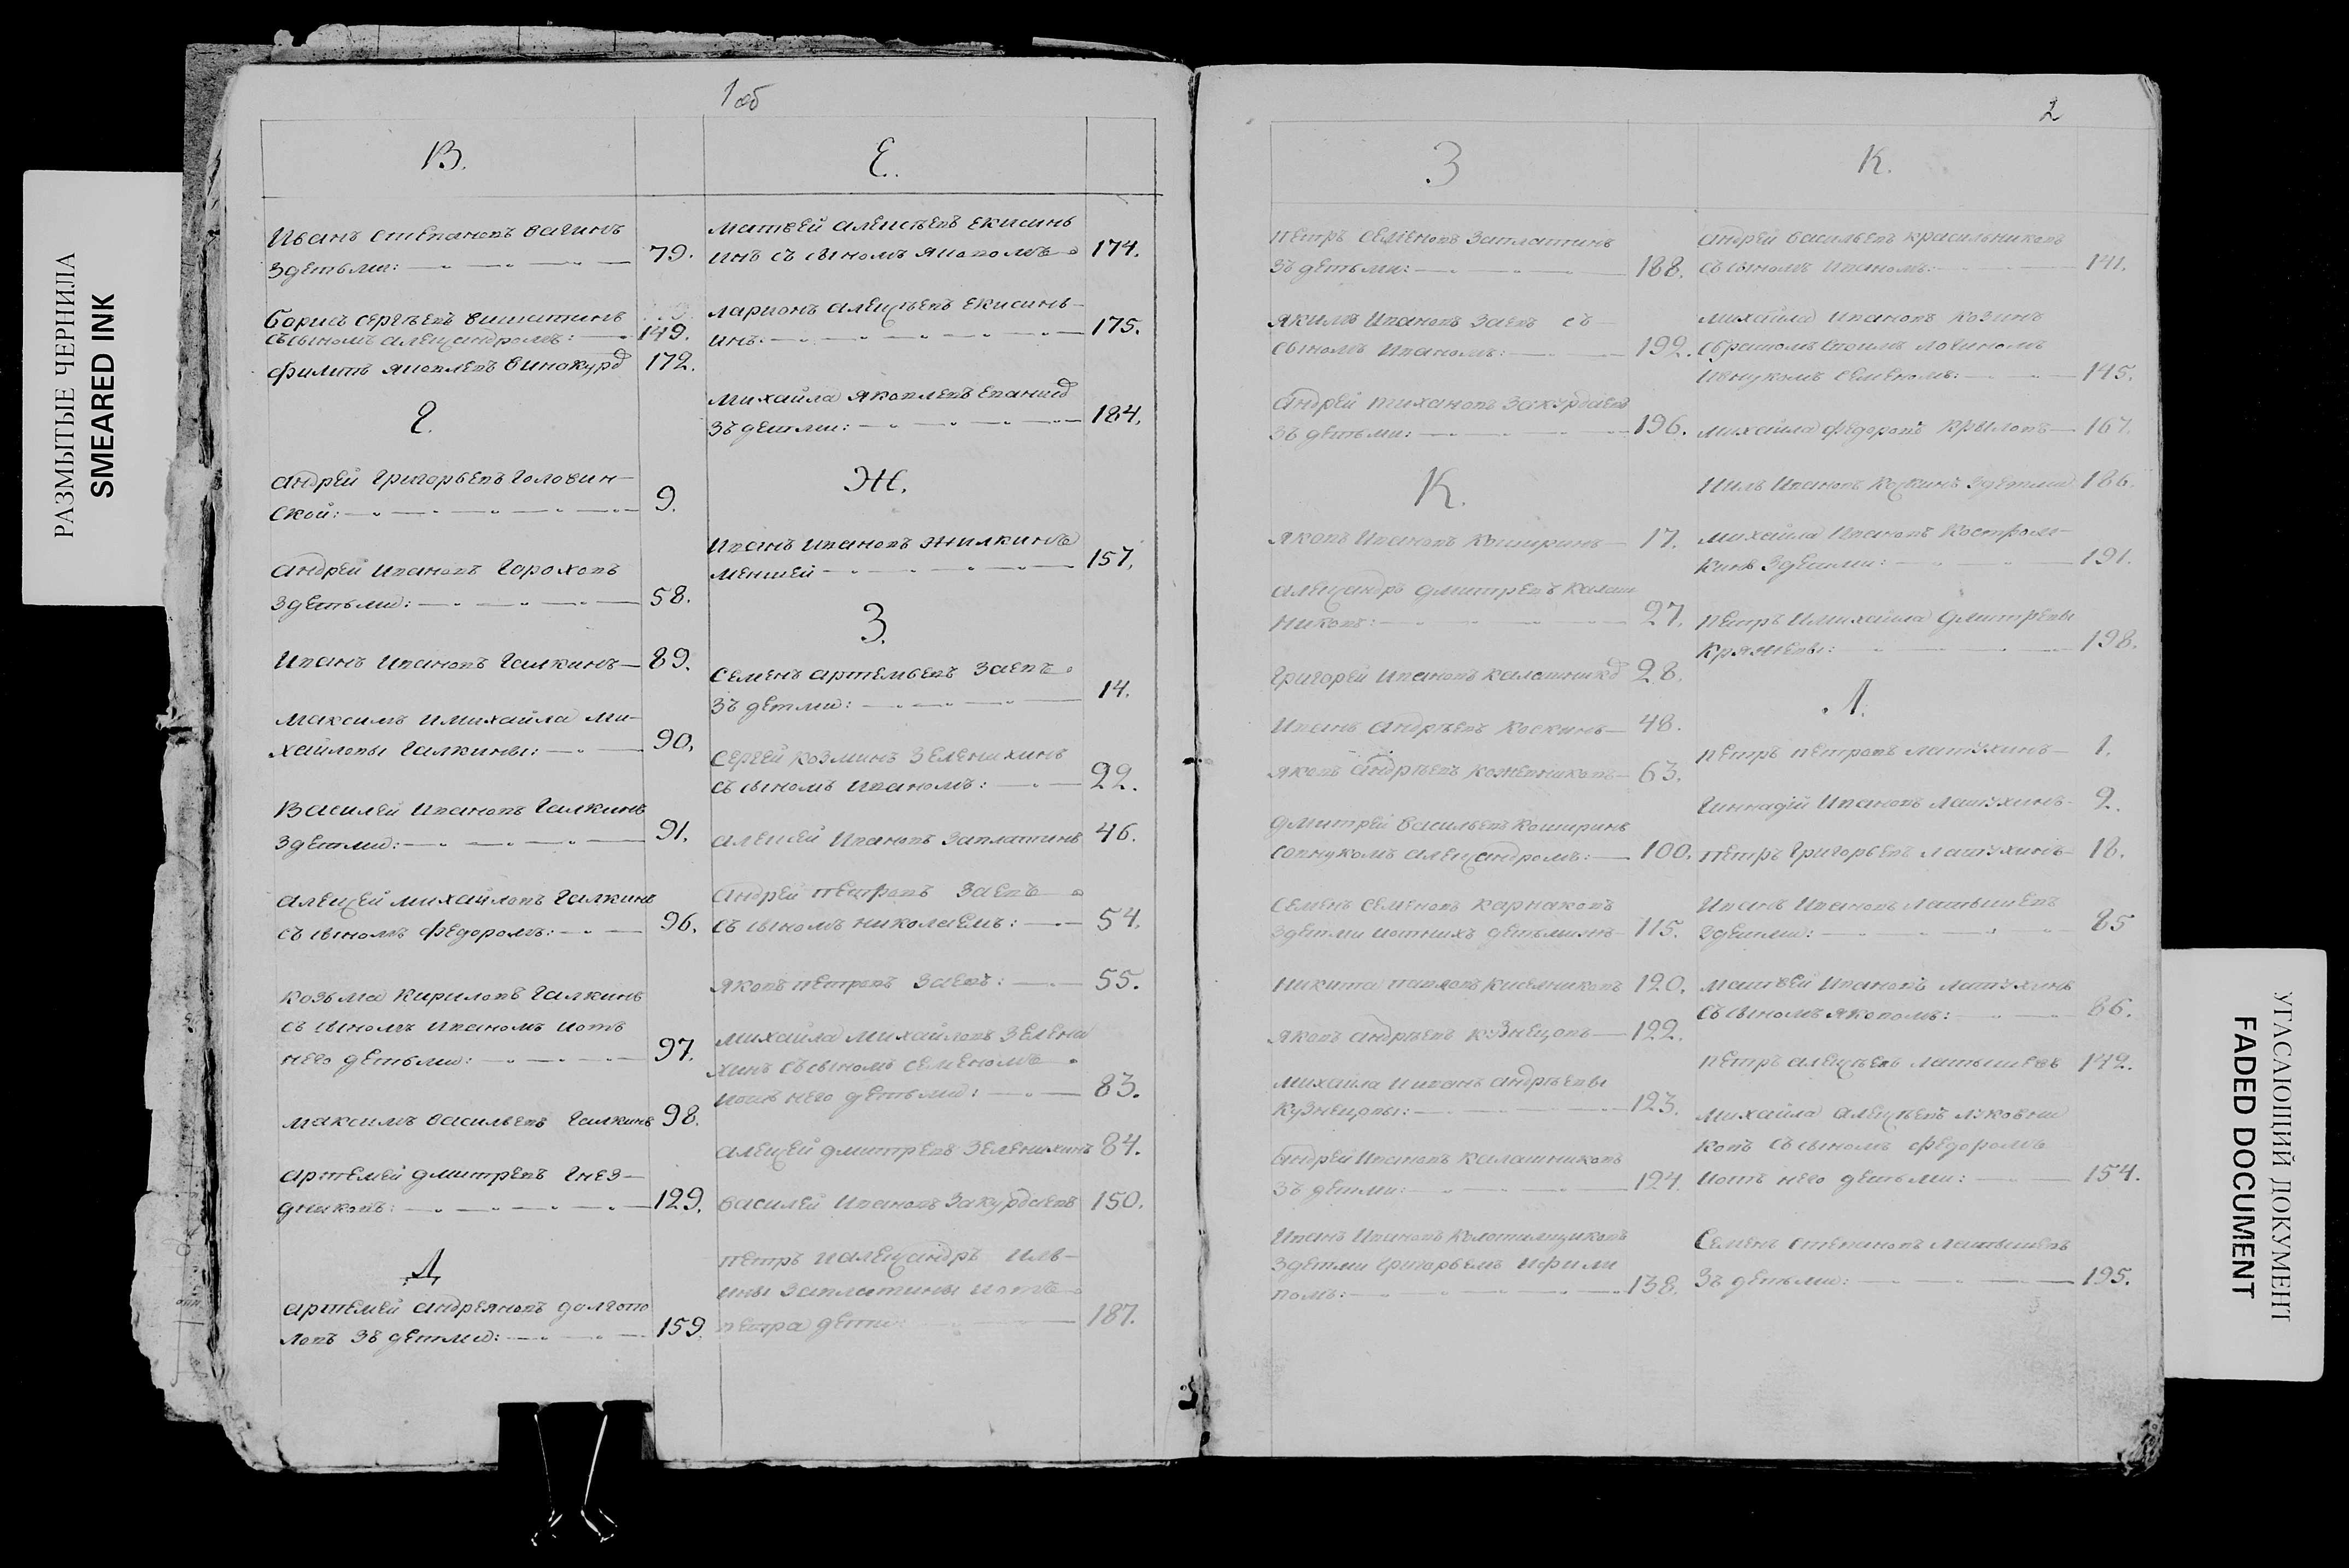 РАЗМЫТЫЕ ЧЕРНИЛА
SMEARED INK
1 об
В.
Иванъ Степановъ Вагинъ
здетьми: 79.
Борисъ Сергѣевъ
съ сыномъ Александромъ: 149.
Филипъ Яковлевъ Винокур 172.
Г.
Андрей Григорьевъ Головин-
ской: 9.
Андрей Ивановъ Гороховъ
здетьми: 58.
Иванъ Ивановъ Галкинъ 89.
Максимъ и Михайла Ми-
хайловы Галкины: 90.
Василей Ивановъ Галкинъ
здетми: 91.
Алексей Михайловъ Галкинъ
съ сыномъ Федоромъ: 96.
Козьма Кириловъ Галкинъ
съ сыномъ Иваномъ иотъ
него детьми: 97.
Максимъ Васильевъ Галкинъ 98.
Артемей Дмитревъ Гнез-
дниковъ: 129.
Д
Артемей Андреяновъ Долгопо
ловъ зъ детми: 159.
Е.
Матвей Алексѣевъ Екисинь
инъ съ сыномъ Яковомъ 174.
Ларионъ Алексѣевъ Екисинь-
инъ: 175.
Михайла Яковлевъ
зъ детми: 184.
Ж.
Иванъ Ивановъ Жилкинъ
меншей 157.
З.
Семенъ Артемьевъ Заевъ
зъ детми: 14.
Сергей Козминъ Зеленихинъ
съ сыномъ Иваномъ: 22.
Алексей Ивановъ Заплатинъ 46.
Андрей Петровъ Заевъ
съ сыномъ Николаемъ: 54.
Яковъ Петровъ Заевъ: 55.
Михайла Михайловъ Зелени
хинъ съ сыномъ Семеномъ
иотъ него детьми: 83.
Алексей Дмитревъ Зеленихинъ 84.
Василей Ивановъ Закурдаевъ 150.
Петръ и Александръ Иль-
ины Заплатины иотъ
Петра дети: 187.
2
З
Петръ Семеновъ Заплатинъ
зъ детьми: 188.
Якимъ Ивановъ Заевъ съ
сыномъ Иваномъ: 192.
Андрей Тихановъ Закурдаевъ
зъ детьми: 196.
К.
Яковъ Ивановъ Коширинъ 17.
Александръ Дмитревъ Калаш
никовъ: 27.
Григорей Ивановъ Калашник 28.
Иванъ Андрѣевъ Коскинъ 48.
Яковъ Андрѣевъ Кожевниковъ 63.
Дмитрей Васильевъ Коширинъ
совнукомъ Александромъ: 100.
Семенъ Семеновъ Карнаковъ
здетми иотнихъ детьми 115.
Никита Павловъ Кисельниковъ 120.
Яковъ Андрѣевъ Кузнецовъ 122.
Михайла и Иванъ Андрѣевы
Кузнецовы: 123.
Андрей Ивановъ Калашниковъ
зъ детми: 124.
Иванъ Ивановъ Колотильщиковъ
здетми Григорьемъ и Фили
помъ: 138.
К.
Андрей Васильевъ Красильниковъ
съ сыномъ Иваномъ: 141.
Михайла Ивановъ Козинъ
сбратомъ своимъ Логиномъ
ивнукомъ Семеномъ: 145.
Михайла Федоровъ Крыловъ 167.
Нилъ Ивановъ здетми 186.
Михайла Ивановъ Костром-
кинъ здетми: 191.
Петръ и Михайла Дмитревы
Кряжевы: 198.
Л.
Петръ Петровъ Латухинъ 1.
Геннадий Ивановъ Латухинъ 2.
Петръ Григорьевъ Латухинъ 18.
Иванъ Ивановъ Латышевъ
здетми: 85
Матвей Ивановъ Латухинъ
съ сыномъ Яковомъ: 86.
Петръ Алексѣевъ Латышевъ 142.
Михайла Алексѣевъ Луковни
ковъ съ сыномъ Федоромъ
иотъ него детьми: 154.
Семенъ Степановъ Латышевъ
зъ детьми: 195.
УГАСАЮЩИЙ ДОКУМЕНТ
FADED DOCUMENT